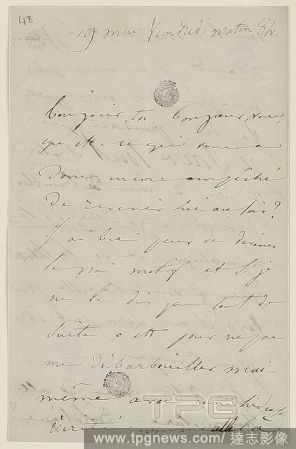 48
19 mai Vendredi matin 8h.
Bonjour, toi, bonjour, vous,
qu'est-ce qui vous a
donc encore empêché
de revenir hier au soir?
J'ai bien peur de deviner
le vrai motif et si je
ne le dis pas tout de
suite c'est pour ne pas
me débarbouiller moi-
même avec
TPG
www.tpgnews.com / 達志影像